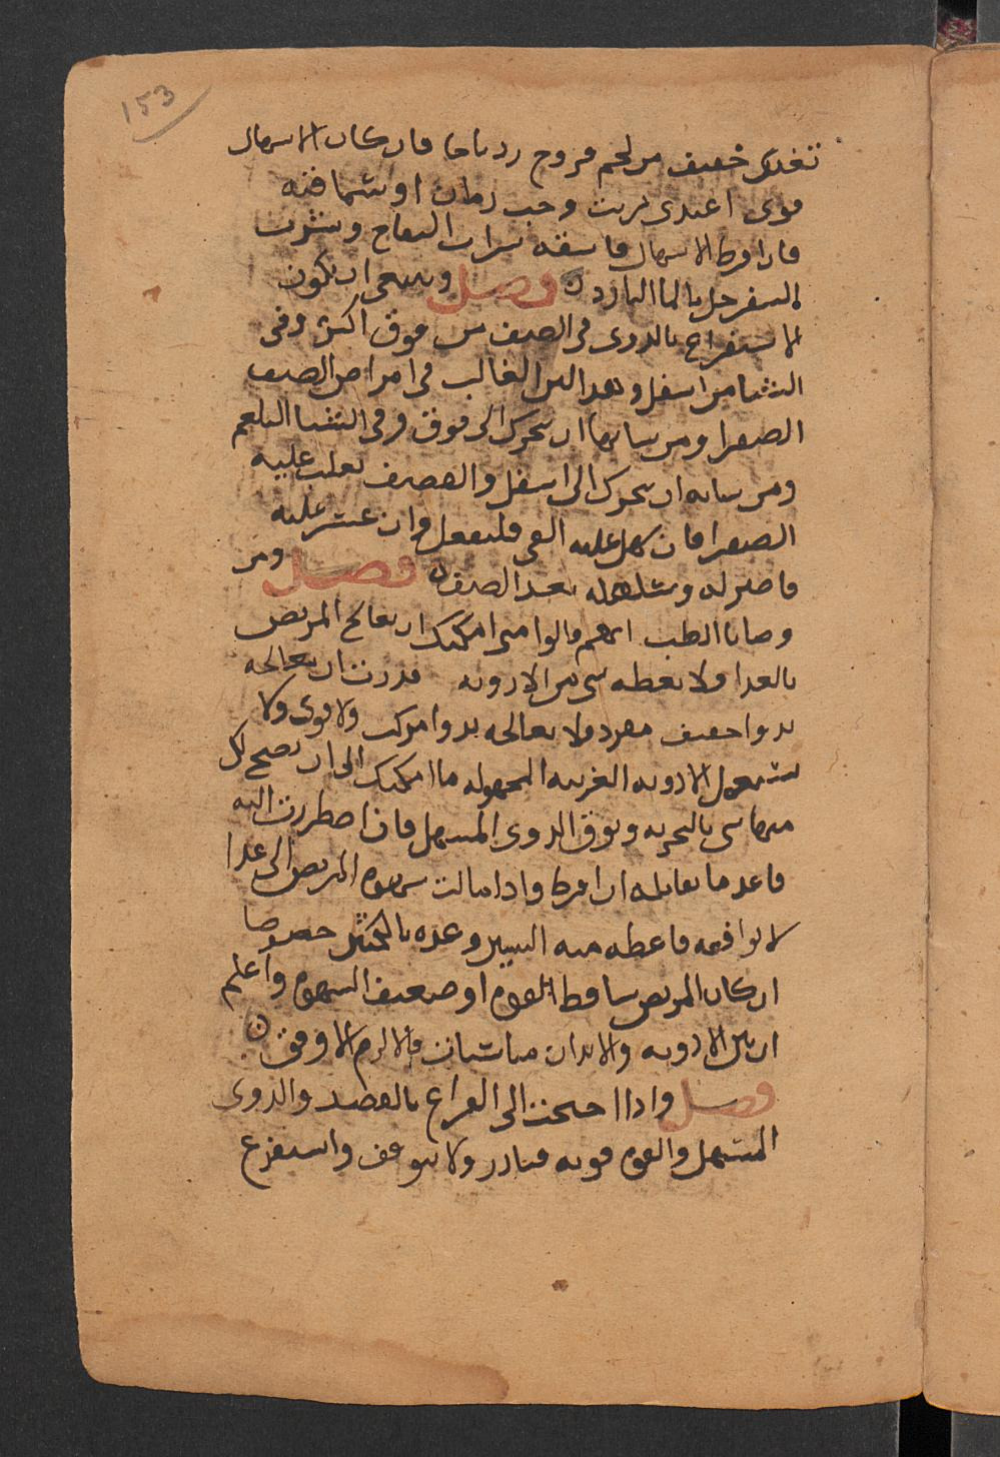 153
تغدى خفيف من لحم فروج زرباجا فان كان الاسهال
قوى اغتدى بزيت وحب رمان او سماقيه
فان افرط الاسهال فاسقه شراب التفاح وشراب
السفرجل بالما البارد ن فصل وينبغي ان يكون
الاستفراغ بالدوى في الصيف من فوق اكثر وفي
الشتا من اسفل وهذا لان الغالب في امراض الصيف
الصفرا ومن شانها ان تتحرك الى فوق وفي الشتا البلغم
ومن شانه ان يتحرك الى اسفل والقصيف تغلب عليه
الصفرا فان سهل عليه القي فليفعل وان عسر عليه
فاصبر له وسهله بعد الصيف ن فصل ومن
وصايا الطب انهم قالوا متى امكنك ان تعالج المريض
بالغدا ولا تعطه شي من الادويه قدرت ان تعالجه
بدوا خفيف مفرد فلا تعالجه بدوا مركب ولا قوى ولا
تستعمل الادويه الغريبه المجهوله ما امكنك الى ان يصح لك
منها شي بالتجربه وتوق الدوى المسهل فاذا اضطررت اليه
فاعد ما يقابله ان افرط واذا مالت شهوة المريض الى غدا
لا يوافقه فاعطه منه اليسير وعده بالكثير خصوصا
ان كان المريض ساقط القوه او ضعيف الشهوه واعلم
ان بين الادويه والابدان مناسبات فالزم الاوفق ن
فصل واذا احتجت الى الفراغ بالفصد والدوى
المسهل والقوه قويه فبادر ولا تتوقف واستفرغ